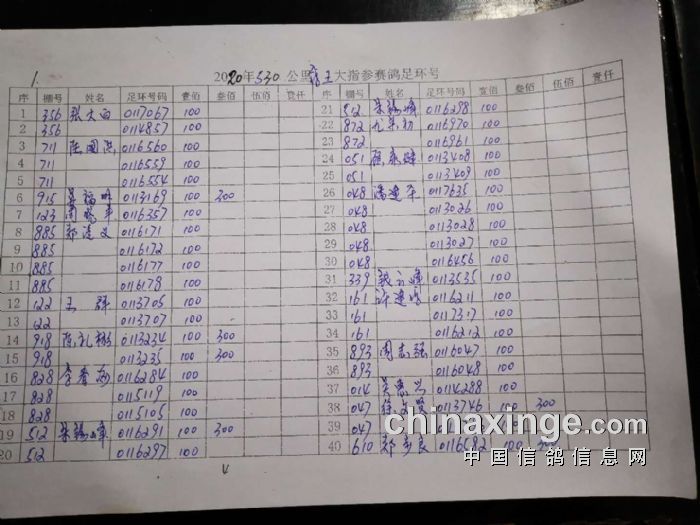 1.
2020年530公里鸽王大指参赛鸽足环号
序 棚号 姓名 足环号码 壹佰 叁佰 伍佰 壹仟
1 356 张大白 0117067 100
2 356 0114857 100
3 711 0116560 100
4 711 0116559 100
5 711 0116554 100
6 915 0113169 100 300
7 123 0116357 100
8 885 0116171 100
9 885 0116172 100
10 885 0116177 100
11 885 0116178 100
12 122 王 0113705 100
13 122 0113707 100
14 918 0113234 100 300
15 918 0113235 100 300
16 828 0116284 100
17 828 0115119 100
18 828 0115105 100
19 512 0116291 100 300
20 512 0116297 100
序 棚号 姓名 足环号码 壹佰 叁佰 伍佰 壹仟
21 512 0116298 100
22 872 0116970 100
23 872 0116961 100
24 051 0113408 100
25 051 0113409 100
26 048 潘建平 0117635 100
27 048 0113026 100
28 048 0113028 100
29 048 0113027 100
30 048 0116456 100
31 339 0113535 100
32 161 0116211 100
33 161 0117317 100
34 161 0116212 100
35 893 周志强 0116047 100
36 893 0116048 100
37 014 吴惠兴 0114288 100
38 047 0113746 100 300
39 047
40 610 郑步良 0116582 100 300
chinaxinge.com
中国信鸽信息网